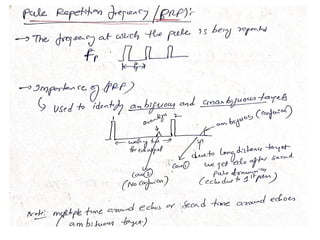 Pulse Repetition frequency (PRF):
→ The frequency at which the pulse is being repeated
fp
→ Importance of (PRF)
↳ used to identify ambiguous and unambiguous targets
1
2
ambiguous (confusion)
waiting time
for echo signal
case ①
(No Confusion)
case ②
due to long distance target
we get echo after second
pulse
(echo due to 1st pulse)
Note: multiple time around echos or second time around echoes
(ambiguous target)